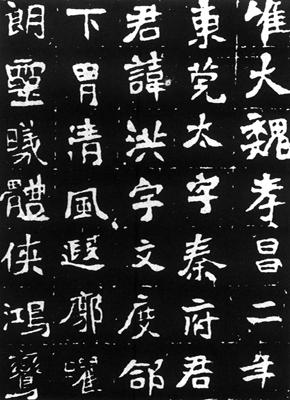 惟大魏孝昌二年
東莞太守秦府君
君諱洪字文度郃
下胄清風遐廓
朗靈曦體俠鴻鸞